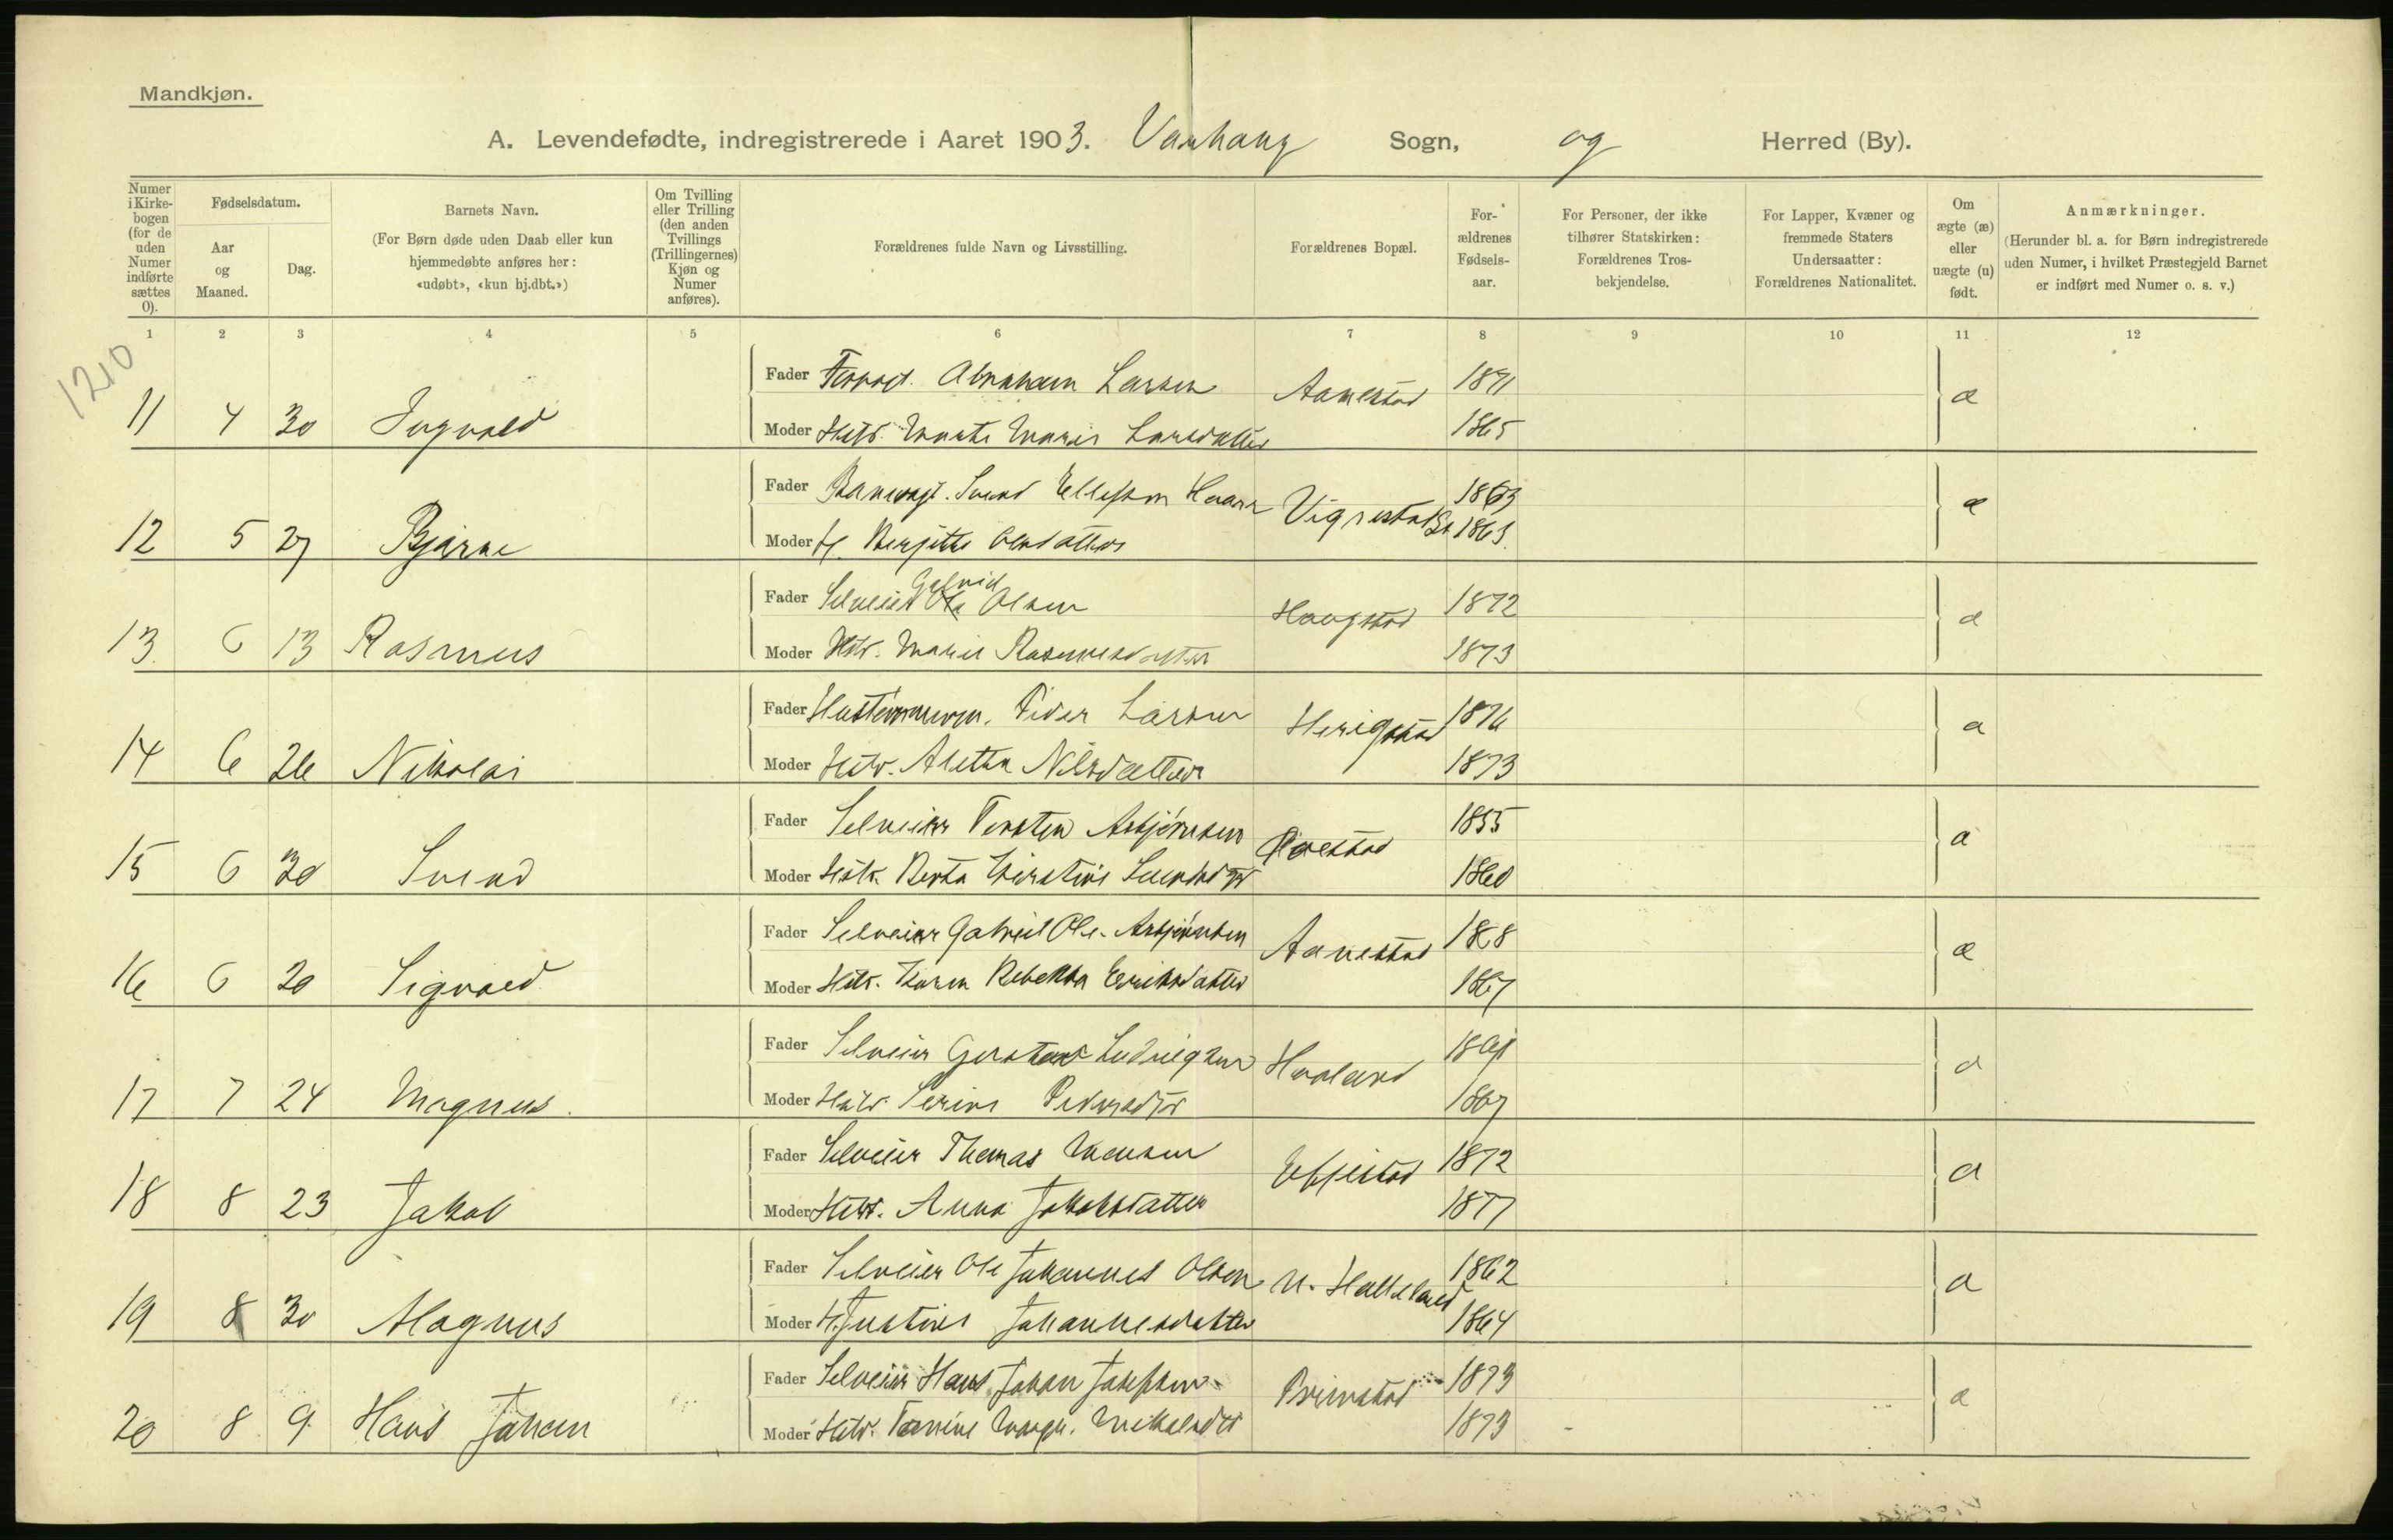 Mandkjøn.
A. Levendefødte, indregistrerede i Aaret 1903. Varhaug Sogn, og Herred (By).
Numer i Kirkebogen (for de uden Numer indførte sættes 0).
Fødselsdatum.
Aar og Maaned.
Dag.
Barnets Navn.
(For Børn døde uden Daab eller kun hjemmedøbte anføres her: «udøbt», «kun hj.dbt.»)
Om Tvilling eller Trilling (den anden Tvillings (Trillingernes) Kjøn og Numer anføres).
Forældrenes fulde Navn og Livsstilling.
Forældrenes Bopæl.
Forældrenes Fødselsaar.
For Personer, der ikke tilhører Statskirken: Forældrenes Trosbekjendelse.
For Lapper, Kvæner og fremmede Staters Undersaatter: Forældrenes Nationalitet.
Om ægte (æ) eller uægte (u) født.
Anmærkninger.
(Herunder bl. a. for Børn indregistrerede uden Numer, i hvilket Præstegjeld Barnet er indført med Numer o. s. v.)
1 2 3 4 5 6 7 8 9 10 11 12
1210
Fader Forpagt. Abraham Larsen Aanestad 1871
11 4 30 Ingvald æ
Moder Hstr. Marte Marie Larsdatter 1865
Fader Banevogt. Svend Ellefsen Haar Vigrestad St 1863
12 5 27 Bjarne æ
Moder H. Bergitte Olsdatter 1863
Fader Selveier Gabriel Olsen Haugstad 1872
13 6 13 Rasmus æ
Moder Hstr. Marie Rasmusdatter 1873
Fader Peder Larsen Herigstad 1876
14 6 26 Nikolai æ
Moder Hstr. Aletha Nilsdatter 1873
Fader Selveier Torsten Asbjørnsen 1855
15 6 30 Svend æ
Moder Hstr. Berta Kirstine Svendsdtr 1860
Fader Selveier Gabriel Ole Asbjørnsen Aanestad 1868
16 6 20 Sigvald æ
Moder Hstr. Karen Rebekka Eriksdatter 1867
Fader Selveier Gustav Ludvigsen Haaland 1861
17 7 24 Magnus. æ
Moder Hstr. Serine Pedersdtr 1867
Fader Selveier Thomas Monsen Odjestad 1872
18 8 23 Jakob æ
Moder Hstr. Anna Jakobsdatter 1877
Fader Selveier Ole Johannes Olsen N. Halleland 1862
19 8 30 Magnus æ
Moder H. Justine Johannesdatter 1864
Fader Selveier Hans Johan Josefsen Brimstad 1873
20 8 9 Hans Johan æ
Moder Hstr. Tomine Mikalsdtr 1873